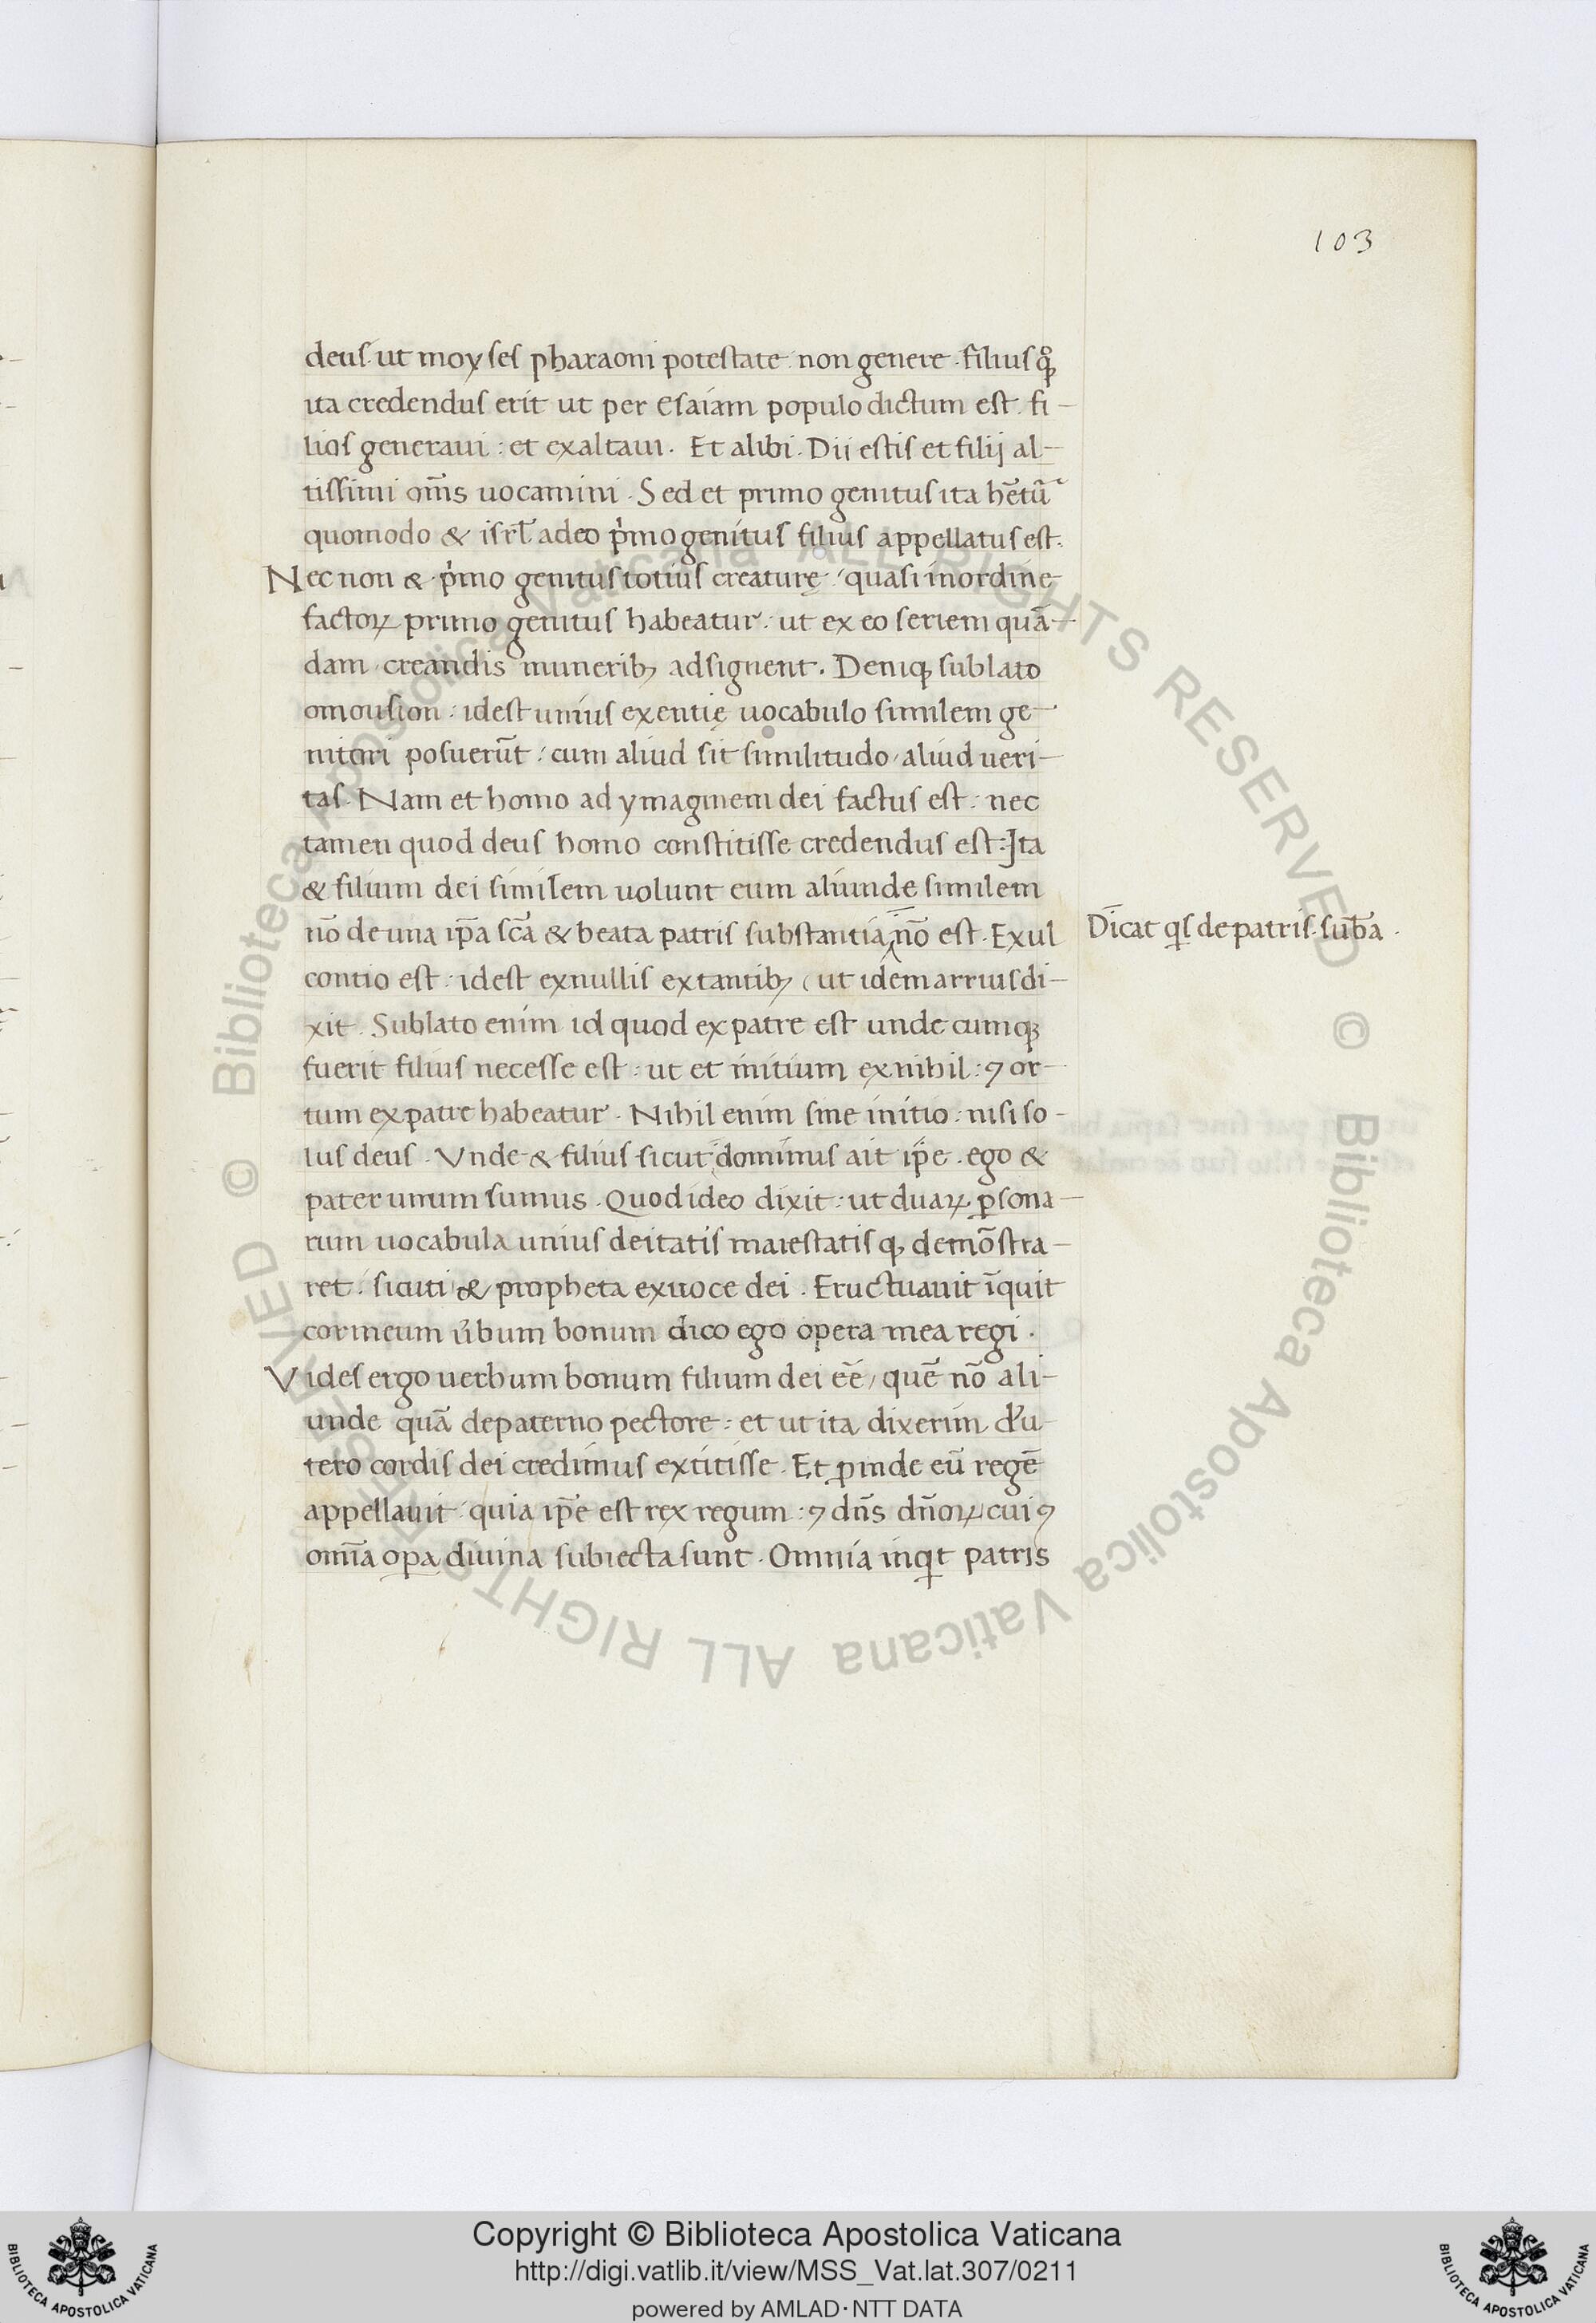 103
deus. ut moyses pharaoni potestate. non genere. filius qͦꝫ
ita credendus erit ut per esaiam populo dictum est. fi-
lios generaui: et exaltaui. Et alibi. Dii estis et filij al-
tissimi om̅s uocamini. Sed et primo genitus ita he̅tu᷑
quomodo & isrl̅ adeo pͥmogenitus filius appellatus est.
Nec non & pͥmo genitus totius creaturę: quasi in ordine
factoꝝ primo genitus habeatur. ut ex eo seriem qua̅-
dam creandis munerib; adsignent. Deniqꝫ sublato
omousion: idest unius exentię uocabulo similem ge-
nitori posueru̅t: cum aliud sit similitudo, aliud ueri-
tas. Nam et homo ad ymaginem dei factus est: nec
tamen quod deus homo constitisse credendus est: Ita
& filium dei similem uolunt eum aliunde similem
no̅ de una ip̅a sc̅a & beata patris substantia, no̅ est. Exul
Dicat qͥs de patris. sub̅a.
contio est: idest ex nullis extantib; (ut idem arrius di-
xit. Sublato enim id quod ex patre est unde cumqꝫ
fuerit filius necesse est: ut et initium ex nihil: ⁊ or-
tum ex patre habeatur. Nihil enim sine initio: nisi so-
lus deus. Vnde & filius sicut dominus ait ip̅e. ego &
pater unum sumus. Quod ideo dixit: ut duaꝝ ꝑsona-
rum uocabula unius deitatis maiestatis qꝫ demo̅stra-
ret: sicuti & propheta ex uoce dei. Eructuauit i̅quit
cor meum u̅bum bonum dico ego opera mea regi.
Vides ergo uerbum bonum filium dei ee̅, que̅ no̅ ali-
unde qua̅ de paterno pectore: et ut ita dixerim d' u-
tero cordis dei credimus extitisse. Et ꝓinde eu̅ rege̅
appellauit: quia ip̅e est rex regum: ⁊ dn̅s dn̅oꝝ cuiꝰ
omi̅a oꝑa diuina subiecta sunt. Omnia inqͥt patris
© Biblioteca Apostolica Vaticana ALL RIGHTS RESERVED © Biblioteca Apostolica Vaticana ALL RIGHTS RESERVED
Copyright © Biblioteca Apostolica Vaticana
http://digi.vatlib.it/view/MSS_Vat.lat.307/0211
powered by AMLAD·NTT DATA
BIBLIOTECA APOSTOLICA VATICANA
BIBLIOTECA APOSTOLICA VATICANA